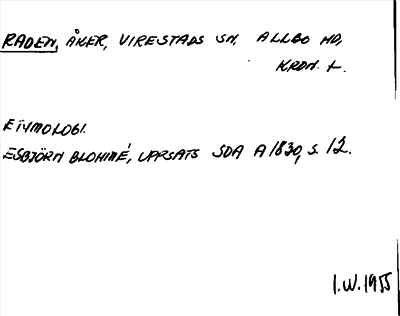 RADEN, ÅKER, VIRESTADS SN, ALLBO HD,
KRON. L.
ETYMOLOGI.
ESBJÖRN BLOHMÉ, UPPSATS SDA A 1830, S. 12.
I.W. 1955